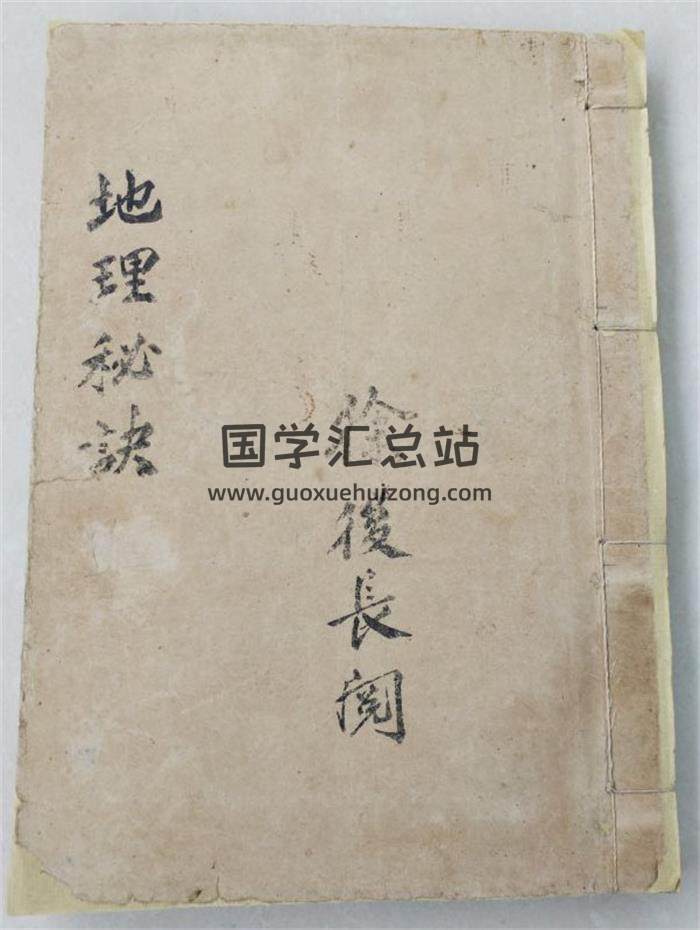 地理秘訣
徐後長閱
国学汇总站
www.guoxuehuizong.com